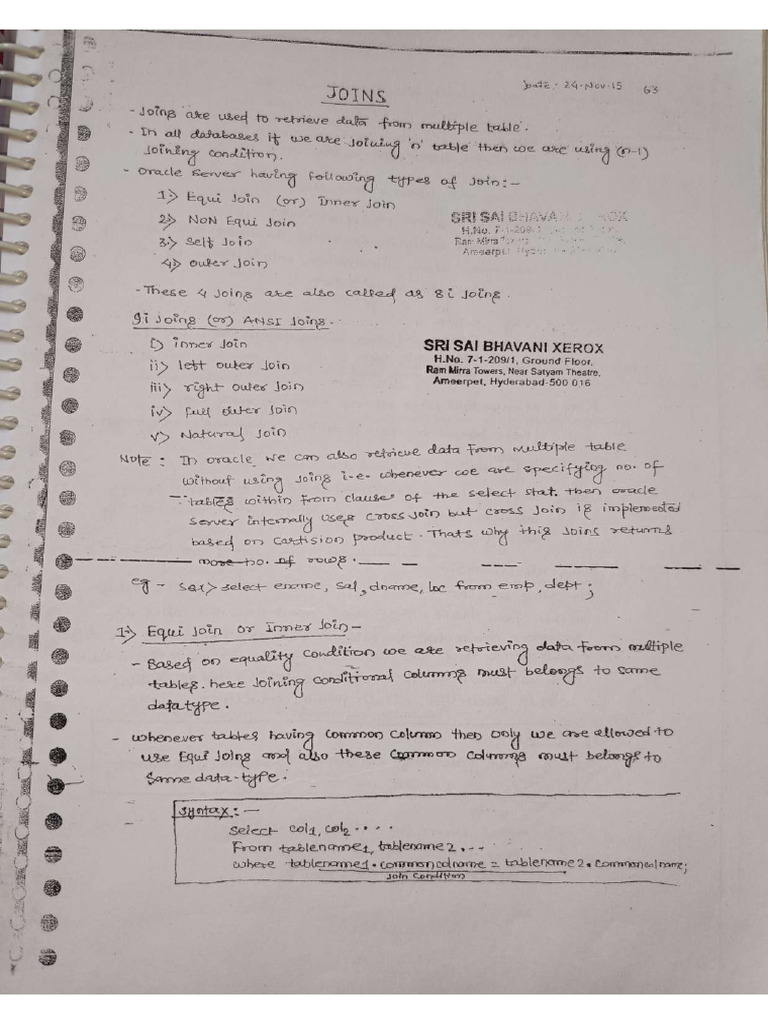 Date: 24-Nov-15 63
JOINS
- Joins are used to retrieve data from multiple table.
- In all databases if we are joining 'n' table then we are using (n-1)
Joining condition.
- Oracle Server having following types of Join:-
1> Equi Join (or) Inner Join
2> NON Equi Join
3> Self Join
4> outer Join
SRI SAI BHAVANI XEROX
H.No. 7-1-209/1
Ram Mirra Towers
Ameerpet, Hyder
- These 4 Joins are also called as 8i Joins.
9i Joins (or) ANSI Joins.
i) inner Join
ii> left outer Join
iii> right outer Join
iv> full outer Join
v> Natural Join
SRI SAI BHAVANI XEROX
H.No. 7-1-209/1, Ground Floor,
Ram Mirra Towers, Near Satyam Theatre,
Ameerpet, Hyderabad-500 016
Note: In oracle we can also retrieve data from multiple table
without using Joins i-e. whenever we are specifying no. of
tables within from clause of the select stat. then oracle
server internally uses cross join but cross join is implemented
based on cartision product. Thats why this Joins returns
more no. of rows.
eg - SQL> select ename, sal, dname, loc from emp, dept;
1> Equi Join or Inner Join-
- Based on equality condition we are retrieving data from multiple
tables. here Joining conditional columns must belongs to same
datatype.
- whenever tables having common column then only we are allowed to
use Equi Joins and also these common columns must belongs to
same data-type.
Syntax:-
Select col1, col2 ....
From tablename1, tablename2, ...
where tablename1.commoncolname = tablename2.commoncolname;
Join Condition